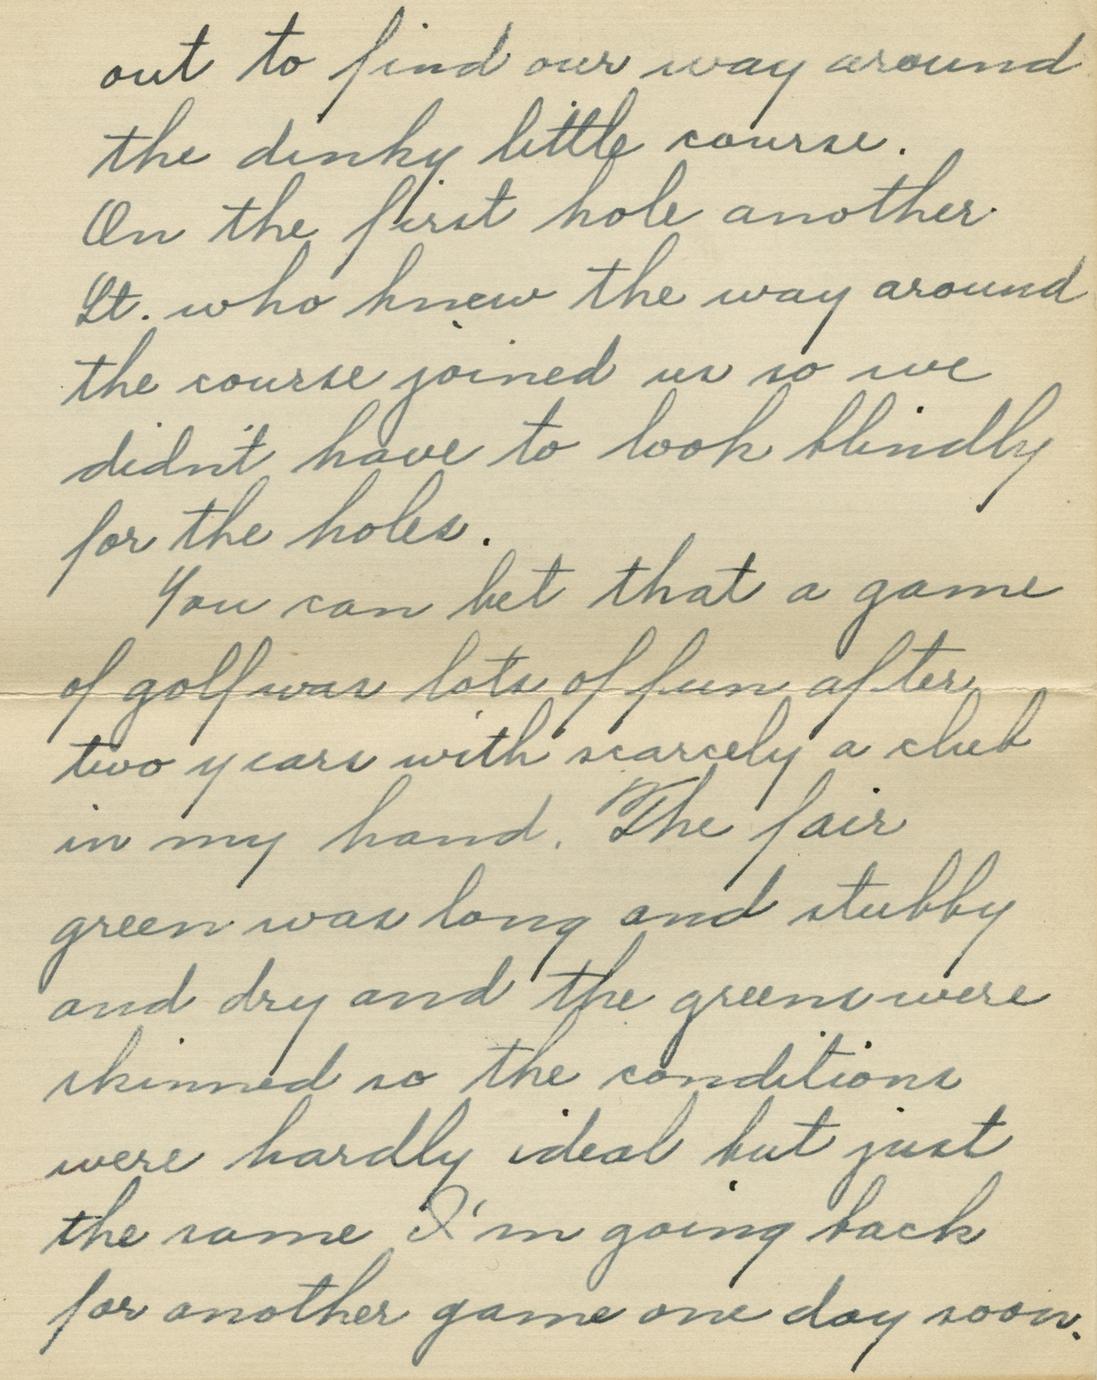 out to find our way around
the dinky little course.
On the first hole another
Lt. who knew the way around
the course joined us so we
didn't have to look blindly
for the holes.
You can bet that a game
of golf was lots of fun after
two years with scarcely a club
in my hand. The fair
green was long and stubby
and dry and the greens were
skinned so the conditions
were hardly ideal but just
the same I'm going back
for another game one day soon.